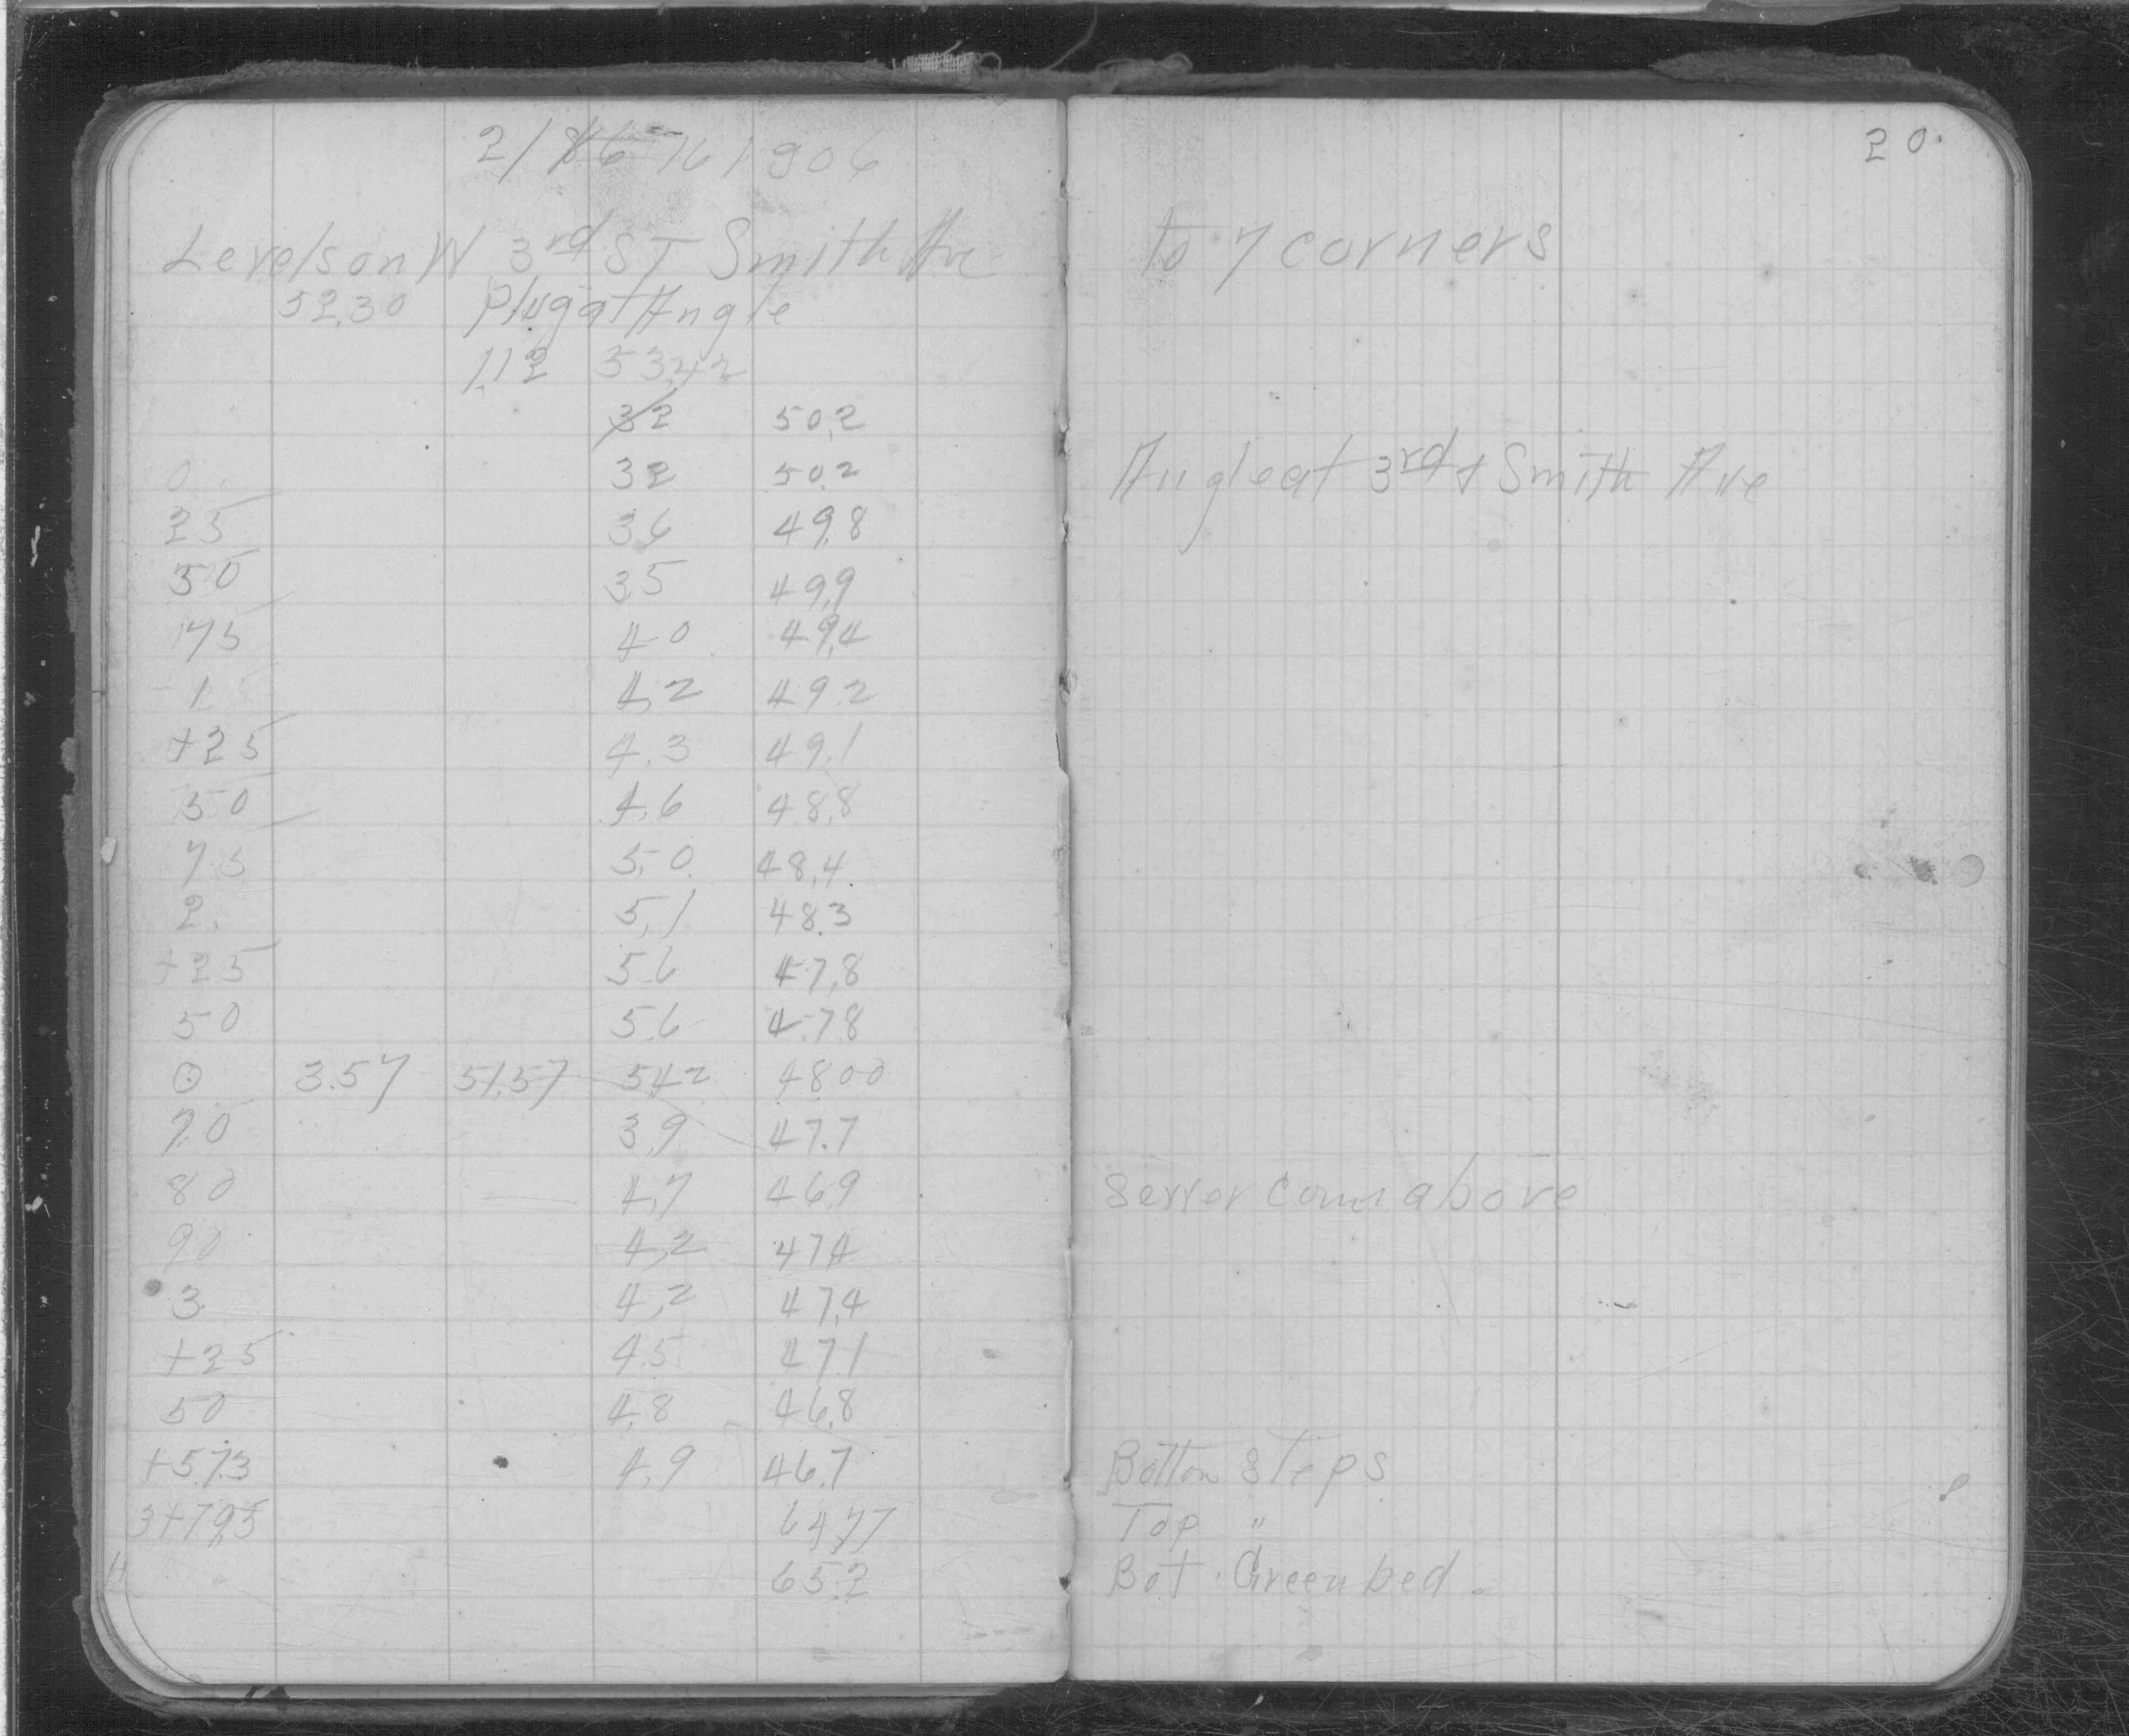 20.
2/16 1906
Levels on W 3rd ST Smith Ave to 7 corners
52.30 Plug at Angle
1.12 53.42
32 50.2
0. 32 50.2 Angle at 3rd & Smith Ave
25 3.6 49.8
50 3.5 49.9
75 4.0 49.4
1. 4.2 49.2
+25 4.3 49.1
50 4.6 48.8
75 5.0 48.4
2. 5.1 48.3
+25 5.6 47.8
50 5.6 47.8
⊙ 3.57 51.57 5.42 48.00
70 3.9 47.7
80 4.7 46.9 Sewer Conn above
90 4.2 47.4
3 4.2 47.4
+25 4.5 47.1
50 4.8 46.8
+57.3 4.9 46.7 Bottom Steps
3+79.5 64.77 Top "
4 65.2 Bot. Green bed.